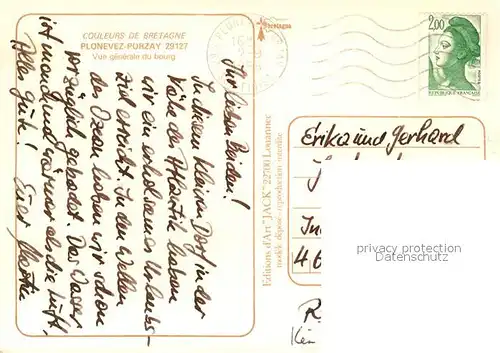 COULEURS DE BRETAGNE
PLONEVEZ-PORZAY 29127
Vue générale du bourg
Ihr lieben Beiden!
In diesem kleinen Dorf in der
Nähe des Atlantik haben
wir ein erholsames Urlaubs-
ziel erreicht. In den Wellen
des Ozean haben wir schon
vorzüglich gebadet. Das Wasser
ist manchmal wärmer als die Luft.
Alles Gute! Euer Martin
Editions d'Art "JACK" 22700 Louannec
modèle déposé reproduction interdite
Bretagne
2,00
REPUBLIQUE FRANÇAISE
Erika und Gerhard
In
46
R
privacy protection
Datenschutz